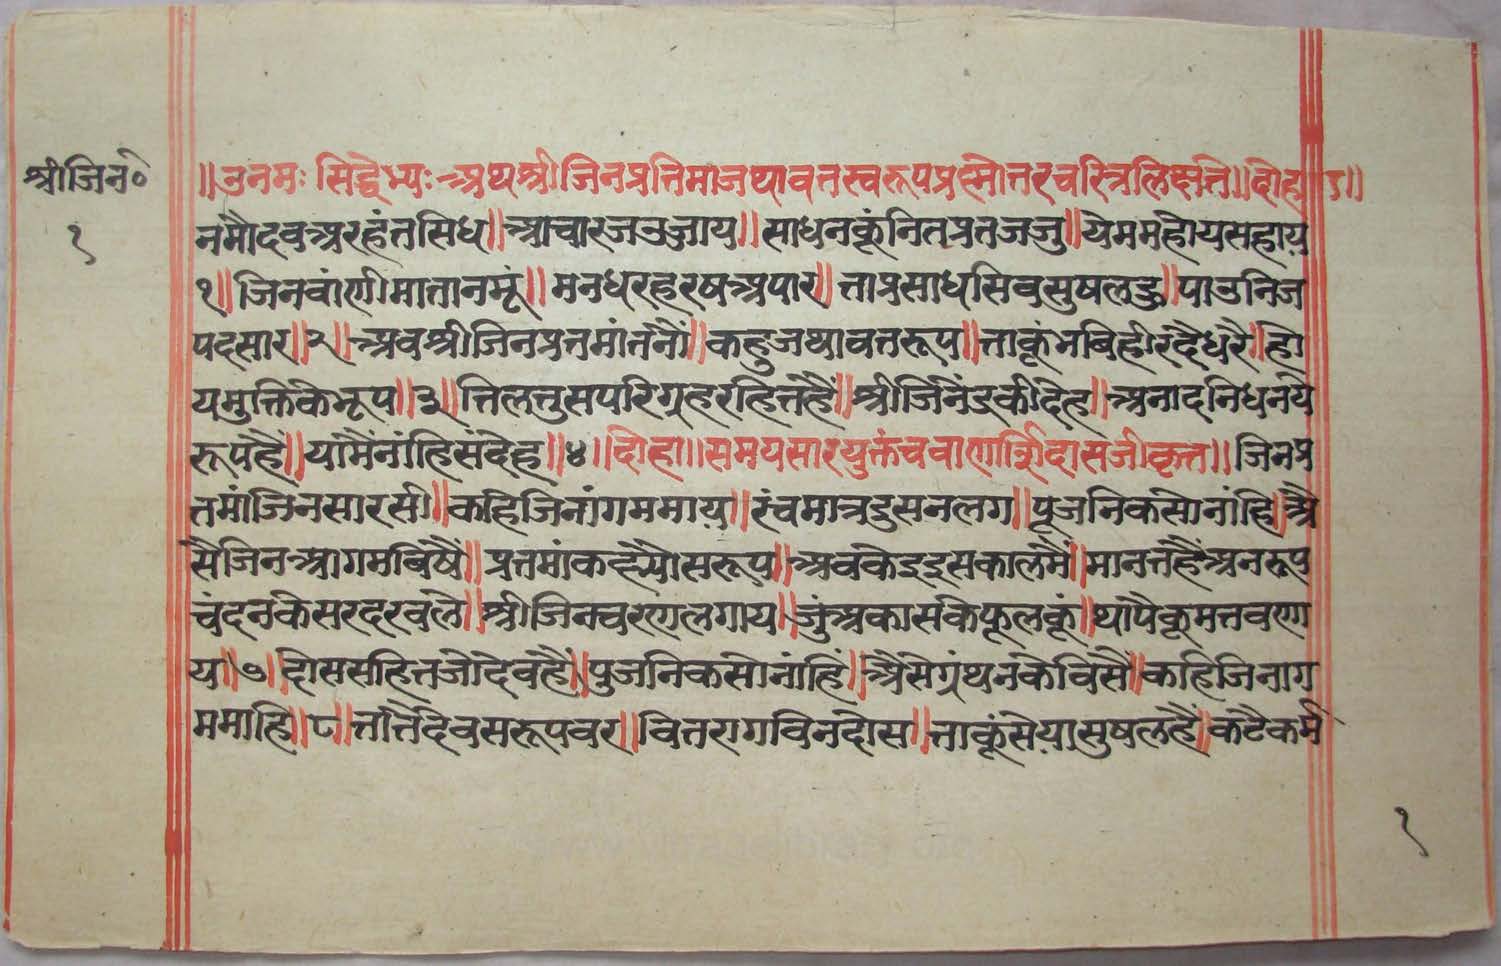 श्रीजिन॰
१
॥उनमः सिद्धेभ्यः अथश्रीजिनप्रतिमाजथावतस्वरूपप्रश्नोत्तरचरित्रलिख्यते॥दोहा॥
नमौदेवअरहंतसिध॥आचारजउजाय॥साधनकूंनितप्रतजजु॥येममहोयसहाय
१॥जिनवांणीमातानमूं॥मनधरहरषअपार॥ताप्रसाधसिवसुषलहु॥पाउनिज
पदसार॥२॥अवश्रीजिनप्रतमांतनौं॥कहुजथावतरूप॥ताकूंभविहीरदैधरै॥हो
यमुक्तिकेभूप॥३॥तिलतुसपरिग्रहरहितहैं॥श्रीजिनेंद्रकीदेह॥अनादनिधनये
रूपहैं॥यामैंनांहिसंदेह॥४॥दोहा॥समयसारयुक्तंचवाणार्शिदासजीकृत॥जिनप्र
तमांजिनसारसी॥कहिजिनांगममाय॥रंचमात्रदुसनलग॥पूजनिकसोनांहि॥अै
सैजिनआगमबिषैं॥प्रतमांकह्यौसरूप॥अवकेइइसकालमैं॥मानतहैंअनरूप
चंदनकेसरदरवले॥श्रीजिनचरणलगाय॥जुंअकार्सकेफूलकूं॥थापैकूमतवणा
य॥७॥दोससहितजोदेवहै॥पुजनिकसोनांहिं॥अैसेग्रंथनकेविसै॥कहिजिनाग
ममाहि॥८॥तातैदेवसरूपवर॥वितरागविनदोस॥ताकूंसेयासुषलहै॥कटैकर्म
१